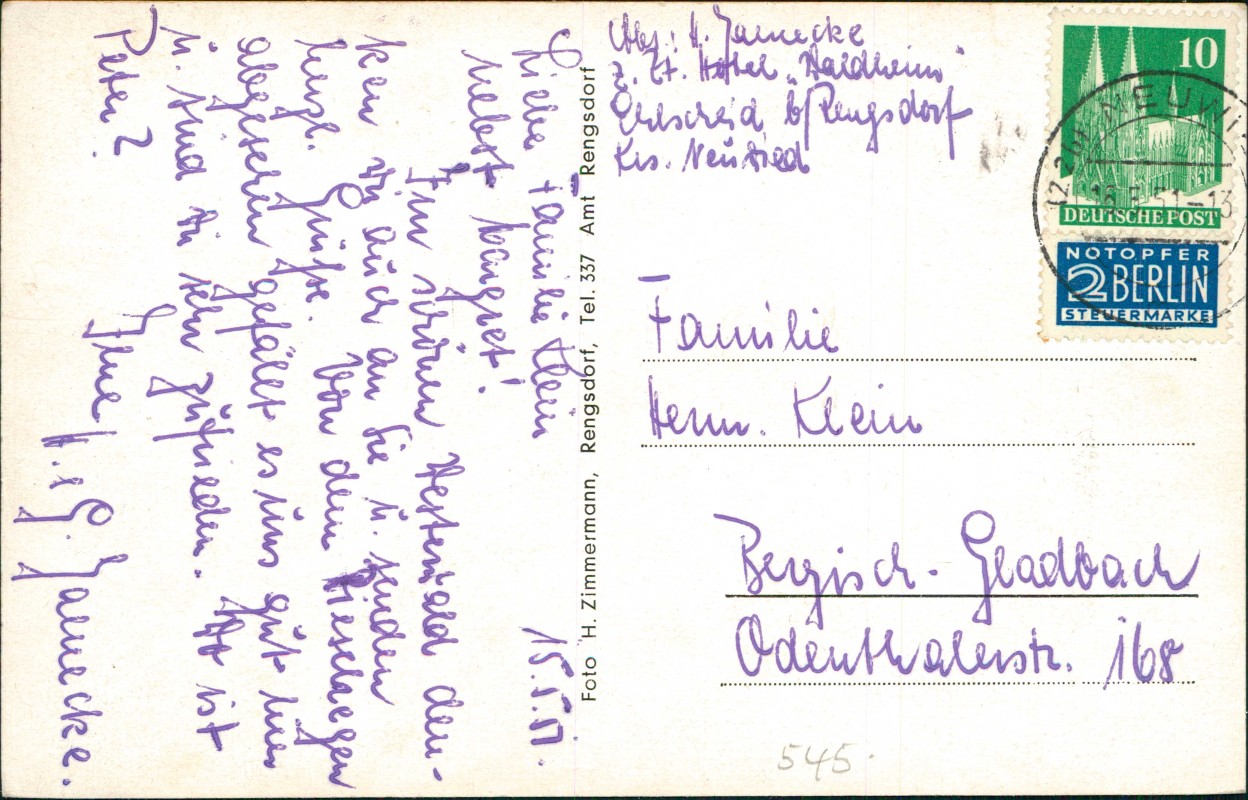 Abs.: H. Jaenecke
z. Zt. Hotel „Waldheim"
Ehlscheid b/Rengsdorf
Krs. Neuwied
10
DEUTSCHE POST
NOTOPFER
2 BERLIN
STEUERMARKE
NEUWIED
51-13
Familie
Herm. Klein
Bergisch-Gladbach
Odenthalerstr. 168
545.
Foto H. Zimmermann, Rengsdorf, Tel. 337 Amt Rengsdorf
15.5.51
Liebe Familie Klein
nebst
Im schönen Westerwald den-
ken wir auch an Sie u. senden
herzl. Grüsse. Von dem
abgesehen gefällt es uns gut hier
u. sind wir sehr zufrieden. Wo ist
Peter?
Ihre
H. u. G. Jaenecke.